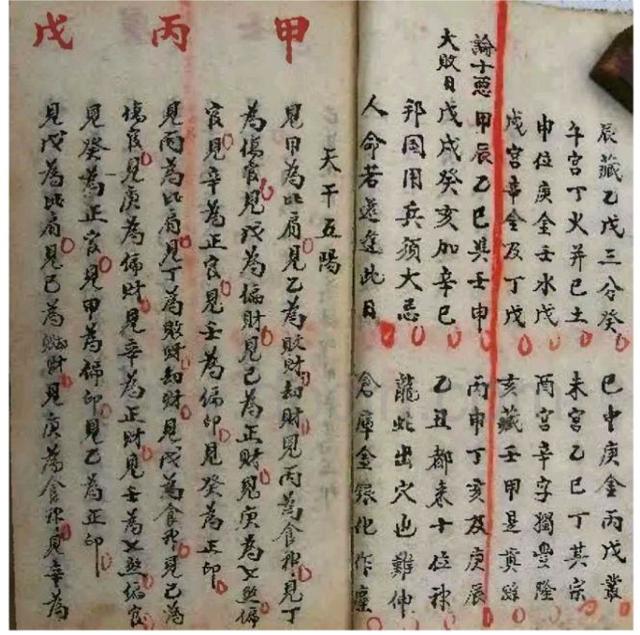 辰藏乙戊三分癸 巳中庚金丙戊叢
午宮丁火并己土 未宮乙己丁其宗
申位庚金壬水戊 酉宮辛字獨豐隆
戌宮辛金及丁戊 亥藏壬甲是真踪
論十惡 甲辰乙巳與壬申 丙申丁亥及庚辰
大敗日 戊戌癸亥加辛巳 乙丑都来十位神
邦国用兵須大忌 龍蛇出穴也難伸
人命若還逢此日 倉庫金銀化作塵
天干五陽
甲
見甲為比肩見乙為敗財劫財見丙為食神見丁
為傷官見戊為偏財見己為正財見庚為七煞偏
官見辛為正官見壬為偏印見癸為正印
丙
見丙為比肩見丁為敗財劫財見戊為食神見己為
傷官見庚為偏財見辛為正財見壬為七煞偏官
見癸為正官見甲為偏印見乙為正印
戊
見戊為比肩見己為財見庚為食神見辛為